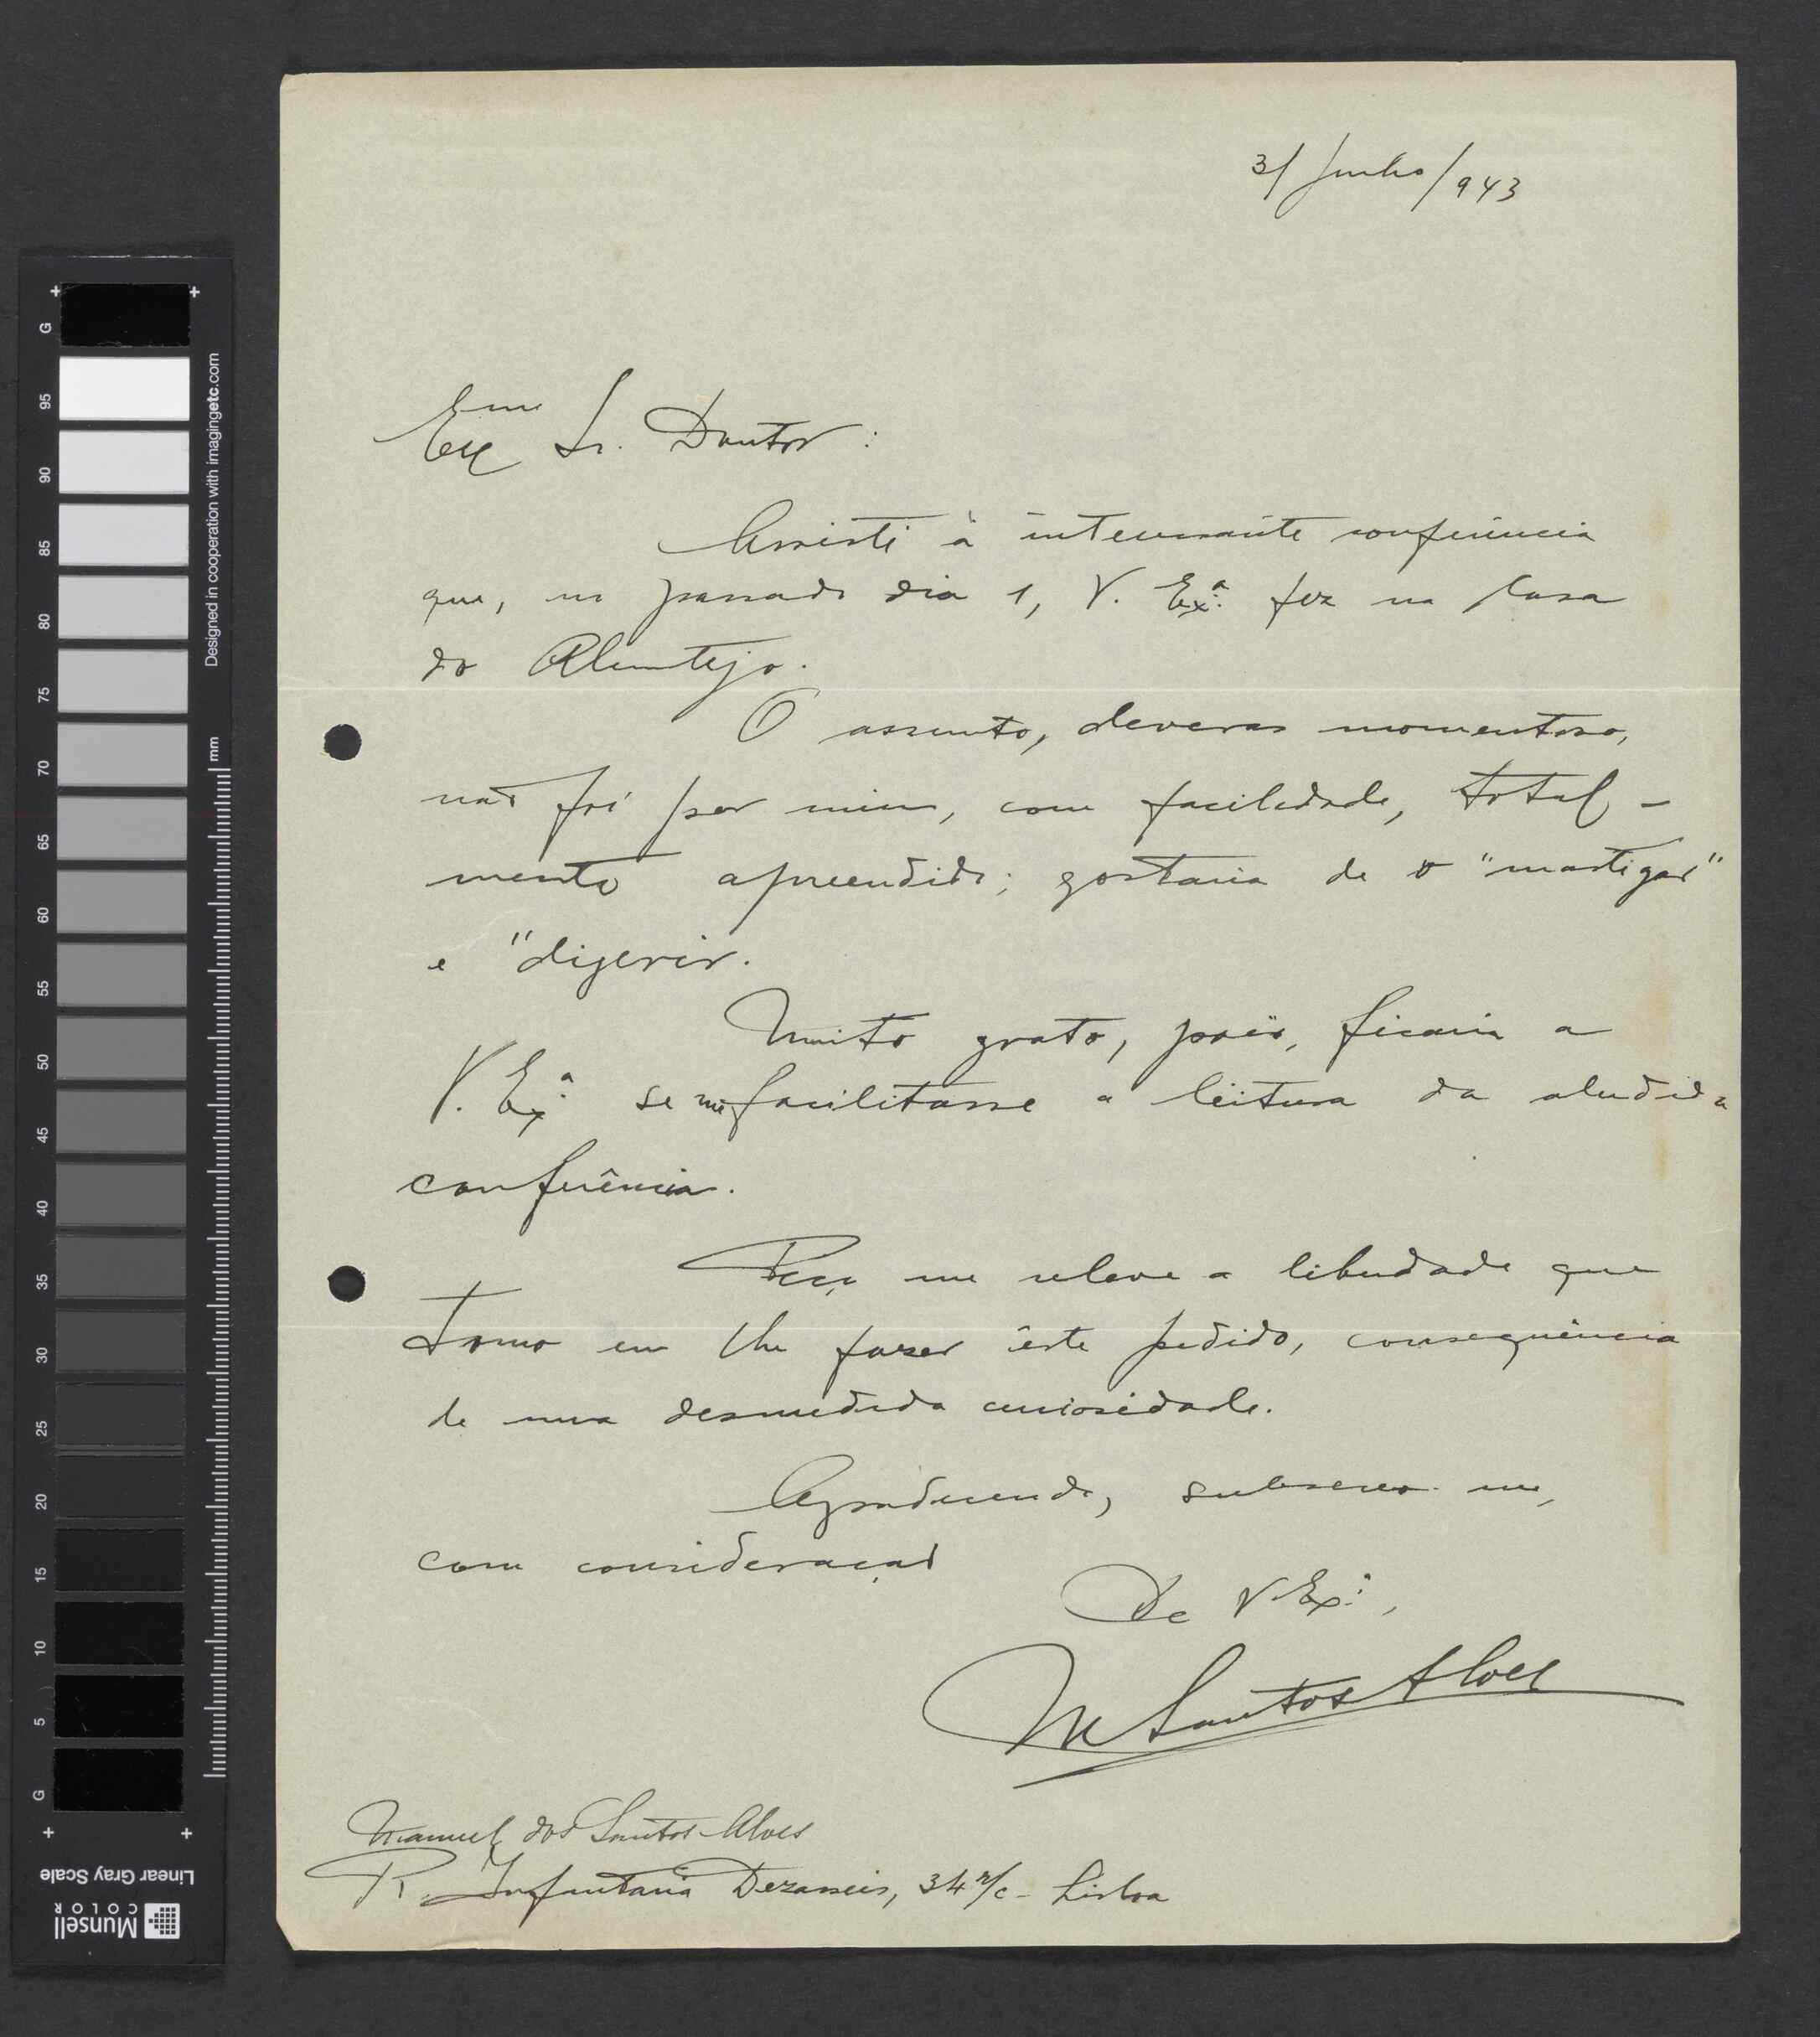 3/Junho/943
Exmo Sr. Doutor:
Assisti à interessante conferência
que, no passado dia 1, V. Exª. fez na Casa
do Alentejo.
O assunto, deveras momentoso,
não foi por mim, com facilidade, total-
mente apreendido; gostaria de o "mastigar"
e "digerir.
Muito grato, pois, ficaria a
V. Exª. se me facilitasse a leitura da aludida
conferência.
Peço me releve a liberdade que
tomo em lhe fazer êste pedido, consequência
de uma desmedida curiosidade.
Agradecendo, subscrevo-me,
com consideração
De V. Exª.,
M Santos Alves
Manuel dos Santos Alves
R. Infantaria Dezasseis, 34 r/c - Lisboa
G
95
90
85
80
75
70
65
60
55
50
45
40
35
30
25
20
15
10
5
G
Designed in cooperation with imagingetc.com
mm
Linear Gray Scale
Munsell
COLOR